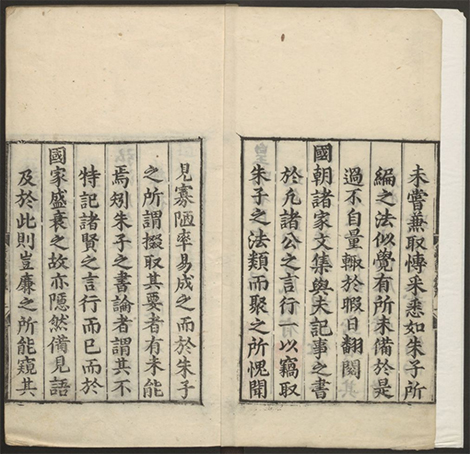 未嘗兼取慱采悉如朱子所
編之法似覺有所未備於是
過不自量輙於暇日翻閱
國朝諸家文集與夫記事之書
於凢諸公之言行一以竊取
朱子之法類而聚之所愧聞
見寡陋率易成之而於朱子
之所謂掇取其要者有未能
焉矧朱子之書論者謂其不
特記諸賢之言行而已而於
國家盛衰之故亦隱然備見語
及於此則豈亷之所能窺其